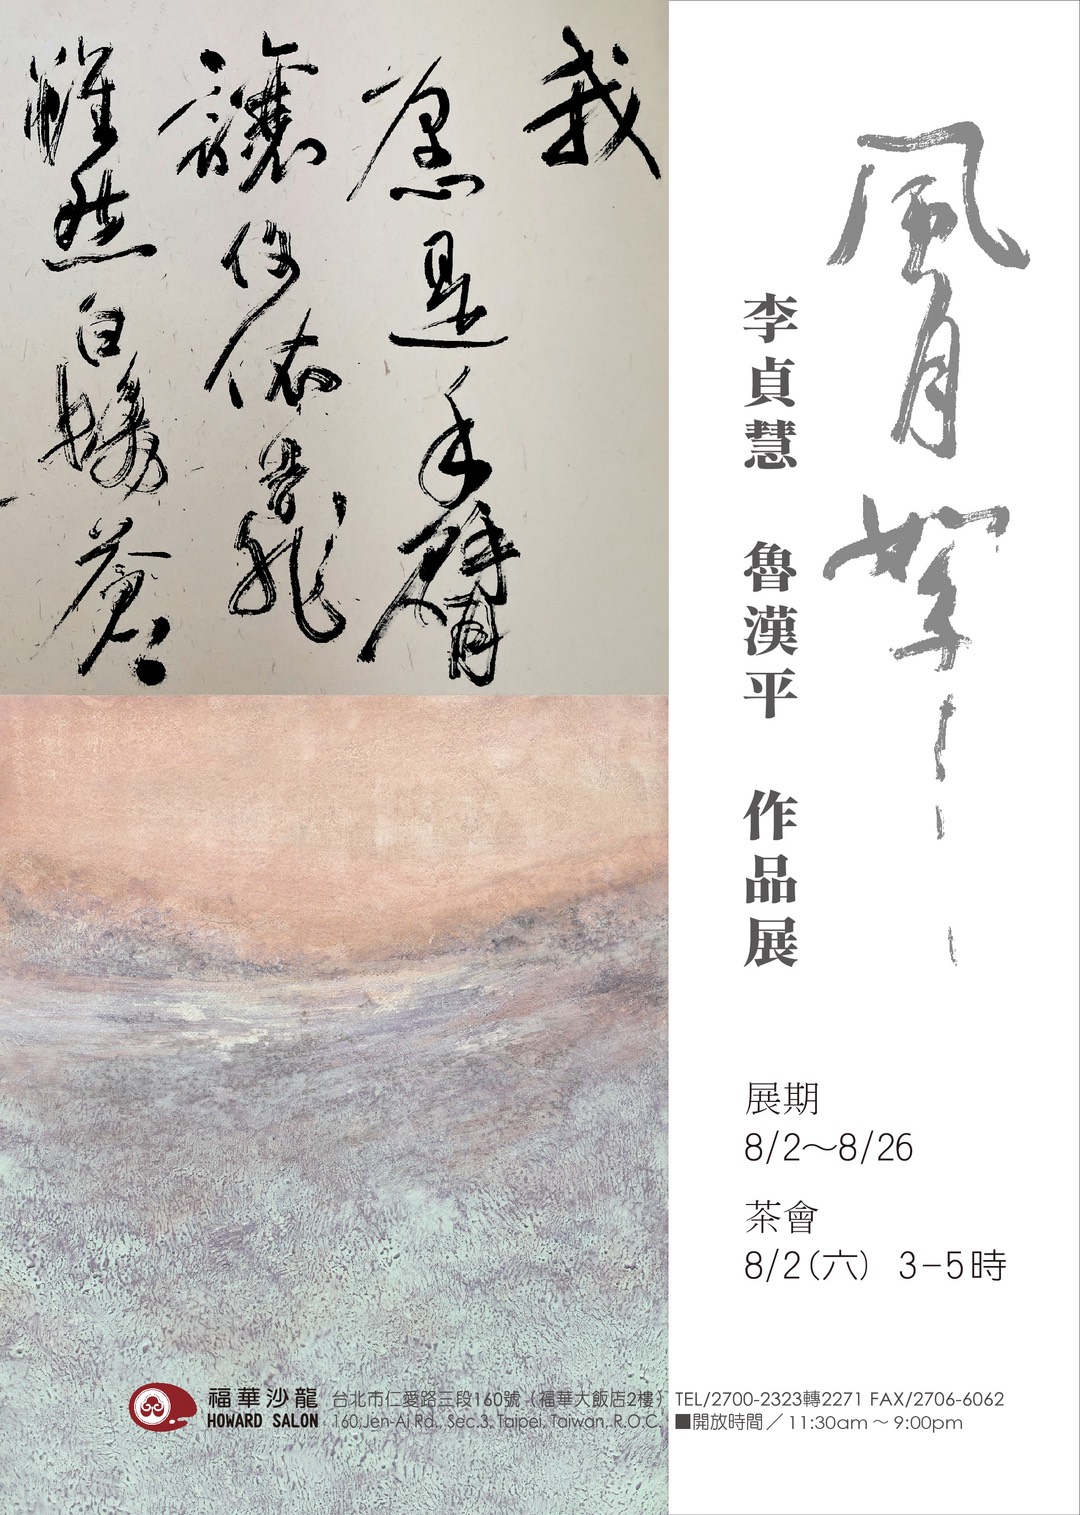 我
愿是手臂
讓你依靠
雖然白髮蒼
風月
李貞慧 魯漢平 作品展
展期
8/2～8/26
茶會
8/2(六) 3-5時
福華沙龍 台北市仁愛路三段160號（福華大飯店2樓） TEL/2700-2323轉2271 FAX/2706-6062
HOWARD SALON 160,Jen-Ai Rd., Sec.3, Taipei, Taiwan, R.O.C. ■開放時間／11:30am～9:00pm